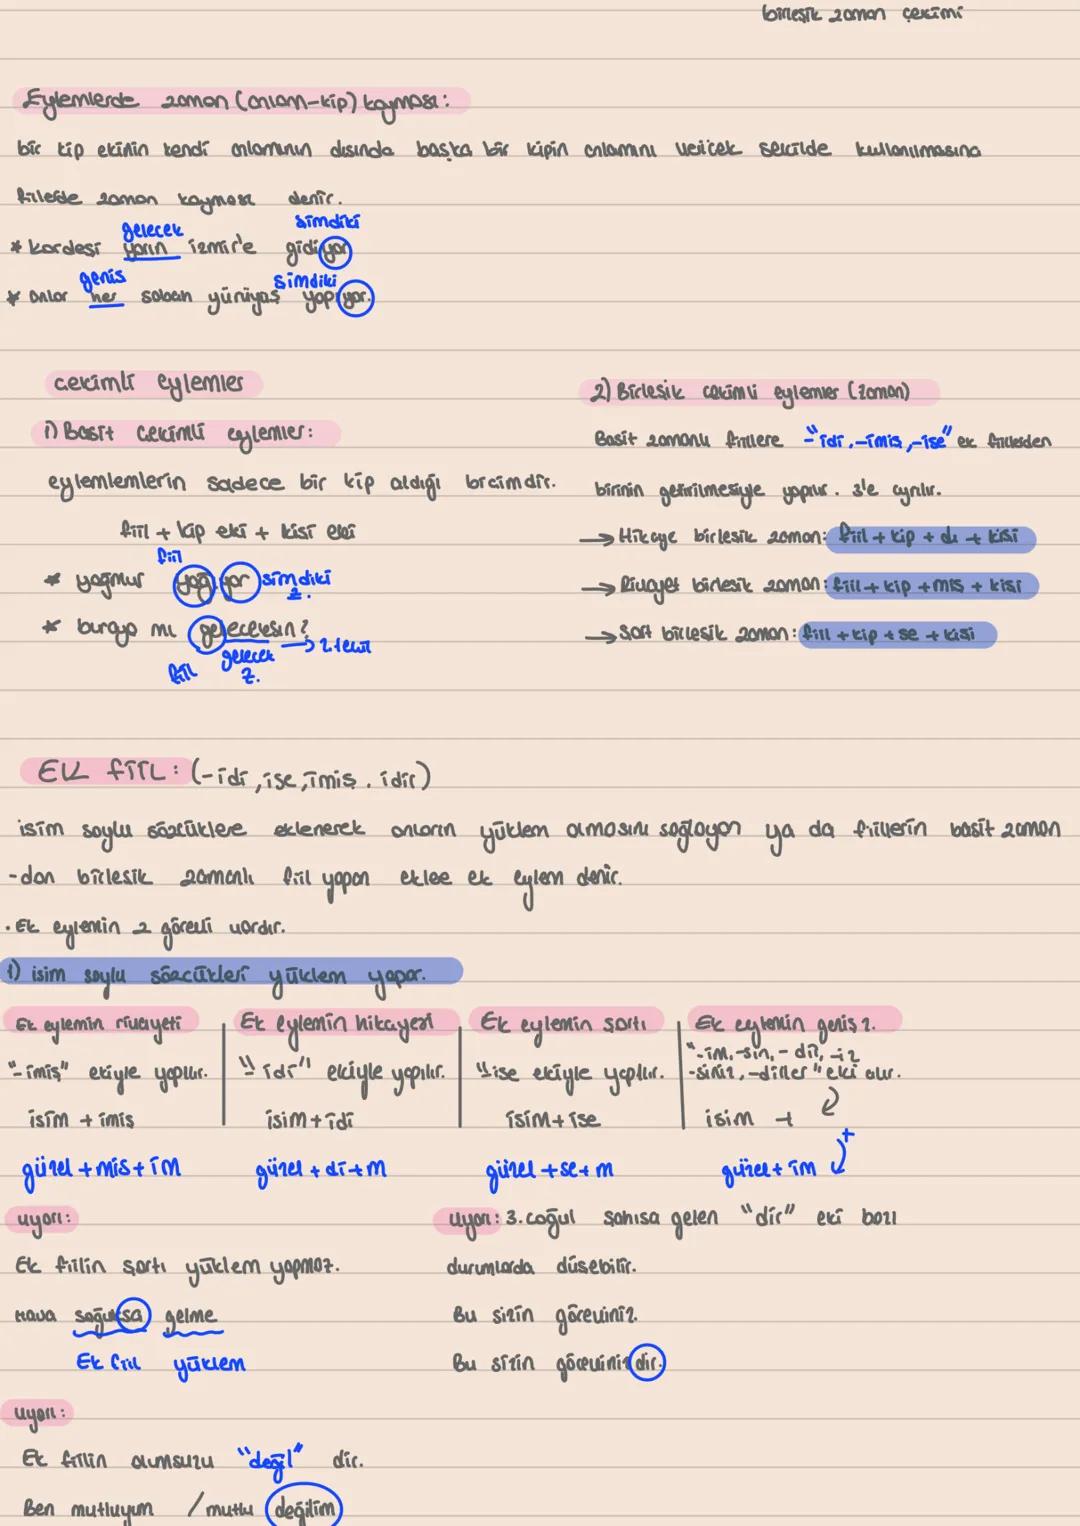 birleşik zaman çekimi
Eylemlerde zaman (anlam-kip) kayması:
bir kip ekinin kendi anlamının dışında başka bir kipin anlamını vericek şekilde kullanılmasına
fiillerde zaman kayması denir.
gelecek şimdiki
* kardeşi yarın izmir'e gidiyor
geniş şimdiki
* onlar her sabah yürüyüş yapıyor.
çekimli eylemler
1) Basit çekimli eylemler:
eylemlemlerin sadece bir kip aldığı
fiil + kip eki + kişi eki
fiil
* yağmur yağıyor şimdiki z.
* buraya mı geleceksin? → 2.tekil
fiil gelecek z.
2) Birleşik çekimli eylemler (zaman)
Basit zamanlı fiillere "-idi, -imiş, -ise" ek fiillerden
birinin getirilmesiyle yapılır. 3'e ayrılır.
→ Hikaye birleşik zaman: fiil + kip + dı + kişi
→ Rivayet birleşik zaman: fiil + kip + mış + kişi
→ Şart birleşik zaman: fiil + kip + se + kişi
EK FİİL: (-idi, ise, imiş, idir)
isim soylu sözcüklere eklenerek onların yüklem olmasını sağlayan ya da fiillerin basit zaman
-dan birleşik zamanlı fiil yapan eklee ek eylem denir.
• Ek eylemin 2 görevi vardır.
1) isim soylu sözcükleri yüklem yapar.
Ek eylemin rivayeti
"-imiş" ekiyle yapılır.
isim + imiş
güzel + miş + im
Ek eylemin hikayesi
"idi" ekiyle yapılır.
isim + idi
güzel + di + m
Ek eylemin şartı
"ise ekiyle yapılır.
isim + ise
güzel + se + m
Ek eylemin geniş z.
"-im, -sin, -dir, -iz
-siniz, -dirler" eki alır.
isim +
güzel + im
uyarı:
Ek fiilin şartı yüklem yapmaz.
Hava soğuksa gelme
Ek fiil yüklem
uyarı: 3. çoğul şahısa gelen "dir" eki bazı
durumlarda düşebilir.
Bu sizin göreviniz.
Bu sizin görevinizdir.
uyarı:
Ek fiilin olumsuzu "değil" dir.
Ben mutluyum / mutlu değilim